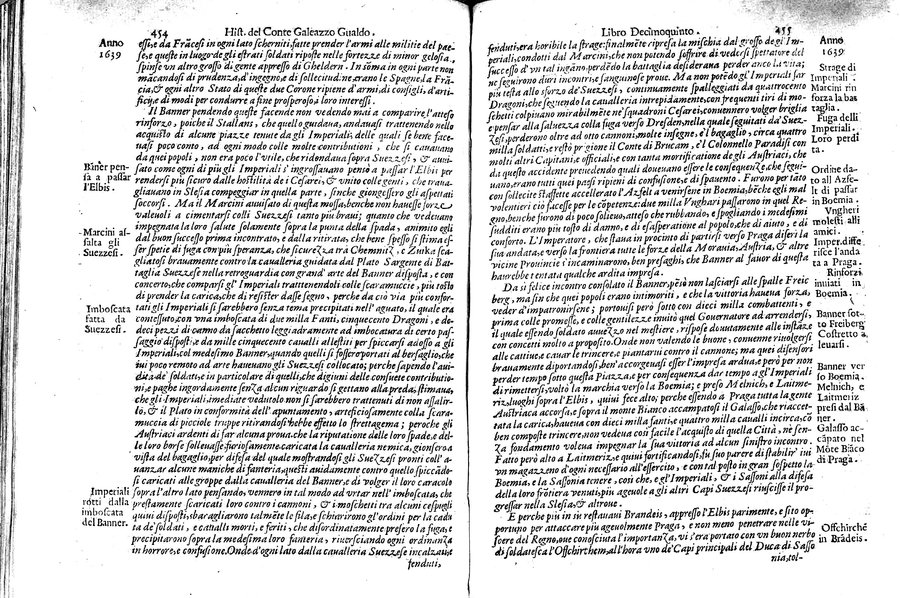 454 Hist. del Conte Galeazzo Gualdo.
Anno
1639
essi, e da Frãcesi in ogni lato scherniti, fatte prender l'armi alle militie del pae-
se, e queste in luogo de gli estrati soldati riposte nelle fortezze di minor gelosia,
spinse vn altro grosso di gente appresso di Gheldern. In sõma in ogni parte non
mãcandosi di prudenza, d'ingegno, e di sollecitudine, erano le Spagne, la Frã-
cia, & ogni altro Stato di queste due Corone ripiene d'armi, di consigli, d'arti-
ficij, e di modi per condurre a fine prosperoso, i loro interessi.
Il Banner pendenti queste facende non vedendo mai a comparire l'atteso
rinforzo, poiche il Stallans, che quello guidaua, andauasi trattenendo nello
acquisto di alcune piazze tenute da gli Imperiali, delle quali se bene face-
uasi poco conto, ad ogni modo colle molte contributioni, che si cauauano
da quei popoli, non era poco l'vtile, che ridondaua sopra Suezzesi, & auui-
sato come ogni dì più gli Imperiali s'ingrossauano pensò a passar l'Elbi per
rendersi più sicuro dalle hostilità de i Cesarei, & vnito colle genti, che traua-
gliauano in Slesia campeggiar in quella parte, finche giongessero gli aspettati
soccorsi. Ma il Marcini auuisato di questa mossa, benche non hauesse forze
valeuoli a cimentarsi colli Suezzesi tanto più braui; quanto che vedeuano
impegnata la loro salute solamente sopra la punta della spada, animito egli
dal buon successo prima incontrato, e dalla ritirata, che bene spesso si stima es-
ser spetie di fuga con più speranza, che sicurezza tra Chemniz, e Zuika sca-
gliatosi brauamente contro la caualleria guidata dal Plato Sargente di Bat-
taglia Suezzese nella retroguardia con grand' arte del Banner disposta, e con
concerto, che comparsi gl'Imperiali trattenendoli colle scaramuccie, più tosto
di prender la carica, che di resister dasse segno, perche da ciò via più confor-
tati gli Imperiali si sarebbero senza tema precipitati nell'aguato, il quale era
contessuto, con vna imboscata di due milla Fanti, cinquecento Dragoni, e de-
deci pezzi di cãmo da sacchetto leggiadramente ad imbocatura di certo pas-
saggio disposti: e da mille cinquecento caualli allestiti per spiccarsi adosso a gli
Imperiali, col medesimo Banner, quando quelli si fossero portati al bersaglio, che
iui poco remoto ad arte haueuano gli Suezzesi collocato; perche sapendo l'aui-
dità de' soldati, e in particolare di quelli, che digiuni delle consuete contributio-
ni, e paghe ingordamente senza alcun riguardo si gettano alla preda, stimaua,
che gli Imperiali, immediate vedutolo non si sarebbero trattenuti di non assalir-
lo, & il Plato in conformità dell'apuntamento, arteficiosamente colla scara-
muccia di picciole truppe ritirãdosi hebbe effetto lo stratagema; peroche gli
Austriaci ardenti di far alcuna proua, che la riputatione delle loro spade, e del-
le loro borse solleuasse, furiosamente caricata la caualleria nemica, gionsero a
vista del bagaglio, per difesa del quale mostrandosi gli Suezzesi pronti coll' a-
uanzar alcune maniche di fanteria, questi auidamente contro quello spiccãdo-
si caricati alle groppe dalla caualleria del Banner, e di volger il loro caracolo
sopra l'altro lato pensando, vennero in tal modo ad vrtar nell' imboscata, che
prestamente scaricati loro contro i cannoni, & i moschetti tra alcuni cespugli
quiui disposti, sbaragliarono talmẽte le fila, e schiarirono gl'ordini per la cadu-
ta de' soldati, e caualli morti, e feriti, che disordinatamente presero la fuga, e
precipitarono sopra la medesima loro fanteria, riuersciando ogni ordinanza
in horrore, e confusione. Onde d'ogni lato dalla caualleria Suezzese incalzati, &
fenduti,
Baner pen-
sa a passar
l'Elbis.
Marcini as-
salta gli
Suezzesi.
Imboscata
fatta da
Suezzesi.
Imperiali
rotti dalla
imboscata
del Banner.
Libro Decimoquinto. 455
fenduti, era horibile la strage; finalmẽte ripresa la mischia dal grosso de gl'Im-
periali, condotti dal Marcini, che non potendo soffrire di vedersi spettatore del
successo d'vn tal ingãno, perdẽdo la battaglia desideraua perder anco la vita;
ne seguirono duri incontri, e sanguinose proue. M a non potẽdo gl'Imperiali far
più testa allo sforzo de' Suezzesi, continuamente spalleggiati da quattrocento
Dragoni, che seguendo la caualleria intrepidamente, con frequenti tiri di mo-
schetti colpiuano mirabilmẽte ne' squadroni Cesarei, conuennero volger briglia
e pensar alla saluezza colla fuga verso Dresden, nella quale seguitati da' Suez-
zesi, perderono oltre ad otto cannoni, molte insegne, e'l bagaglio, circa quattro
milla soldati, e restò prigione il Conte di Brucam, e'l Colonnello Paradisi con
molti altri Capitani, e officiali, e con tanta mortificatione de gli Austriaci, che
da questo accidente preuedendo quali doueuano essere le conseguenze, che segui-
uano, erano tutti quei paesi ripieni di confusione, e di spauento. Furono per tato
con sollecite staffette accellerato l'Azfelt a venirsene in Boemia, bẽche egli mal
volentieri ciò facesse per le cõpetenze, e due milla Vnghari passarono in quel Re-
gno, benche furono di poco solieuo, atteso che rubbando, e spogliando i medesimi
sudditi erano più tosto di danno, e di esasperatione al popolo, che di aiuto, e di
conforto. L'Imperatore, che staua in procinto di partirsi verso Praga diferì la
sua andata, e verso la frontiera tutte le forze della Morauia, Austria, & altre
vicine Prouincie s'incaminarono, ben presaghi, che Banner al fauor di questa
haurebbe tentata qualche ardita impresa.
Da sì felice incontro consolato il Banner, però non lasciarsi alle spalle Freic
berg, ma sin che quei popoli erano intimoriti, e che la vittoria haueua forza,
veder d'impatronirsene; portouisi però sotto con dieci milla combattenti, e
prima colle promesse, e colle gentilezze inuitò quel Gouernatore ad arrendersi,
il quale essendo soldato auuezzo nel mestiere, rispose douutamente alle instãze
con concetti molto a proposito. Onde non valendo le buone, conuenne riuolgersi
alle cattiue, e cauar le trincere, e piantarui contro il cannone; ma quei difensori
brauamente diportandosi, ben'accorgeuasi esser l'impresa ardua, e però per non
perder tempo sotto questa Piazza, e per conseguenza dar tẽpo a gl'Imperiali
di rimettersi, voltò la marchia verso la Boemia; e preso Melnich, e Laitme-
riz, luoghi sopra l'Elbis, quiui fece alto, perche essendo a Praga tutta la gente
Austriaca accorsa, e sopra il monte Bianco accampatosi il Galasso, che riaccet-
tata la carica, haueua con dieci milla fanti, e quattro milla caualli incirca, cõ
ben composte trincere, non vedeua così facile l'acquisto di quella Città, nè sen-
za fondamento voleua impegnar la sua vittoria ad alcun sinistro incontro.
Fatto però alto a Laitmeriz, e quiui fortificandosi, fù suo parere di stabilir' iui
vn magazzeno d'ogni necessario all'essercito, e con tal posto in gran sospetto la
Boemia, e la Sassonia tenere, così che, e gl'Imperiali, & i Sassoni alla difesa
della loro frõtiera venuti, più ageuole a gli altri Capi Suezzesi riuscisse il pro-
gressar nella Slesia, & altroue.
E perche più in sù restauaui Brandeis, appresso l'Elbis parimente, e sito op-
portuno per attaccare più ageuolmente Praga, e non meno penetrare nelle vi-
scere del Regno, oue conosciuta l'importanza, vi s'era portato con vn buon nerbo
di soldatesca l'Offchirchem, all'hora vno de' Capi principali del Duca di Sasso
nia, tol-
Anno
1639.
Strage di
Imperiali.
Marcini rin
forza la bat
taglia.
Fuga delli
Imperiali.
Loro perdi
ta.
Ordine da-
to all Azfe-
lt di passar
in Boemia.
Vngheri
molesti alli
amici.
Imper. diffe
risce l'anda
ta a Praga.
Rinforzi
inuiati in
Boemia.
Banner sot-
to Freiberg
Costretto a
leuarsi.
Banner ver
so Boemia.
Melnich, e
Laitmeriz
presi dal Bã
ner.
Galasso ac-
cãpato nel
Mõte Biãco
di Praga.
Offchirchẽ
in Brãdeis.